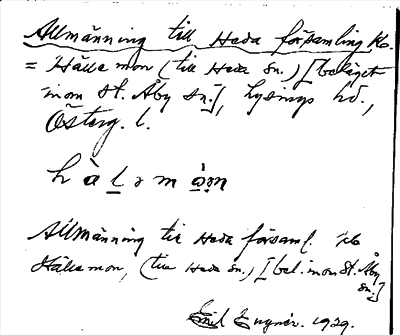 Allmänning till Heda församling Kb.
= Hålla mon (till Heda sn.) [beläget
inom St. Åby sn.], Lysings hd.,
Österg. l.
h à l ə m ò̤n
Allmänning till Heda församl. kb
Hålla mon, (till Heda sn.) [bel. inom St. Åby
sn.]
Emil 1929.